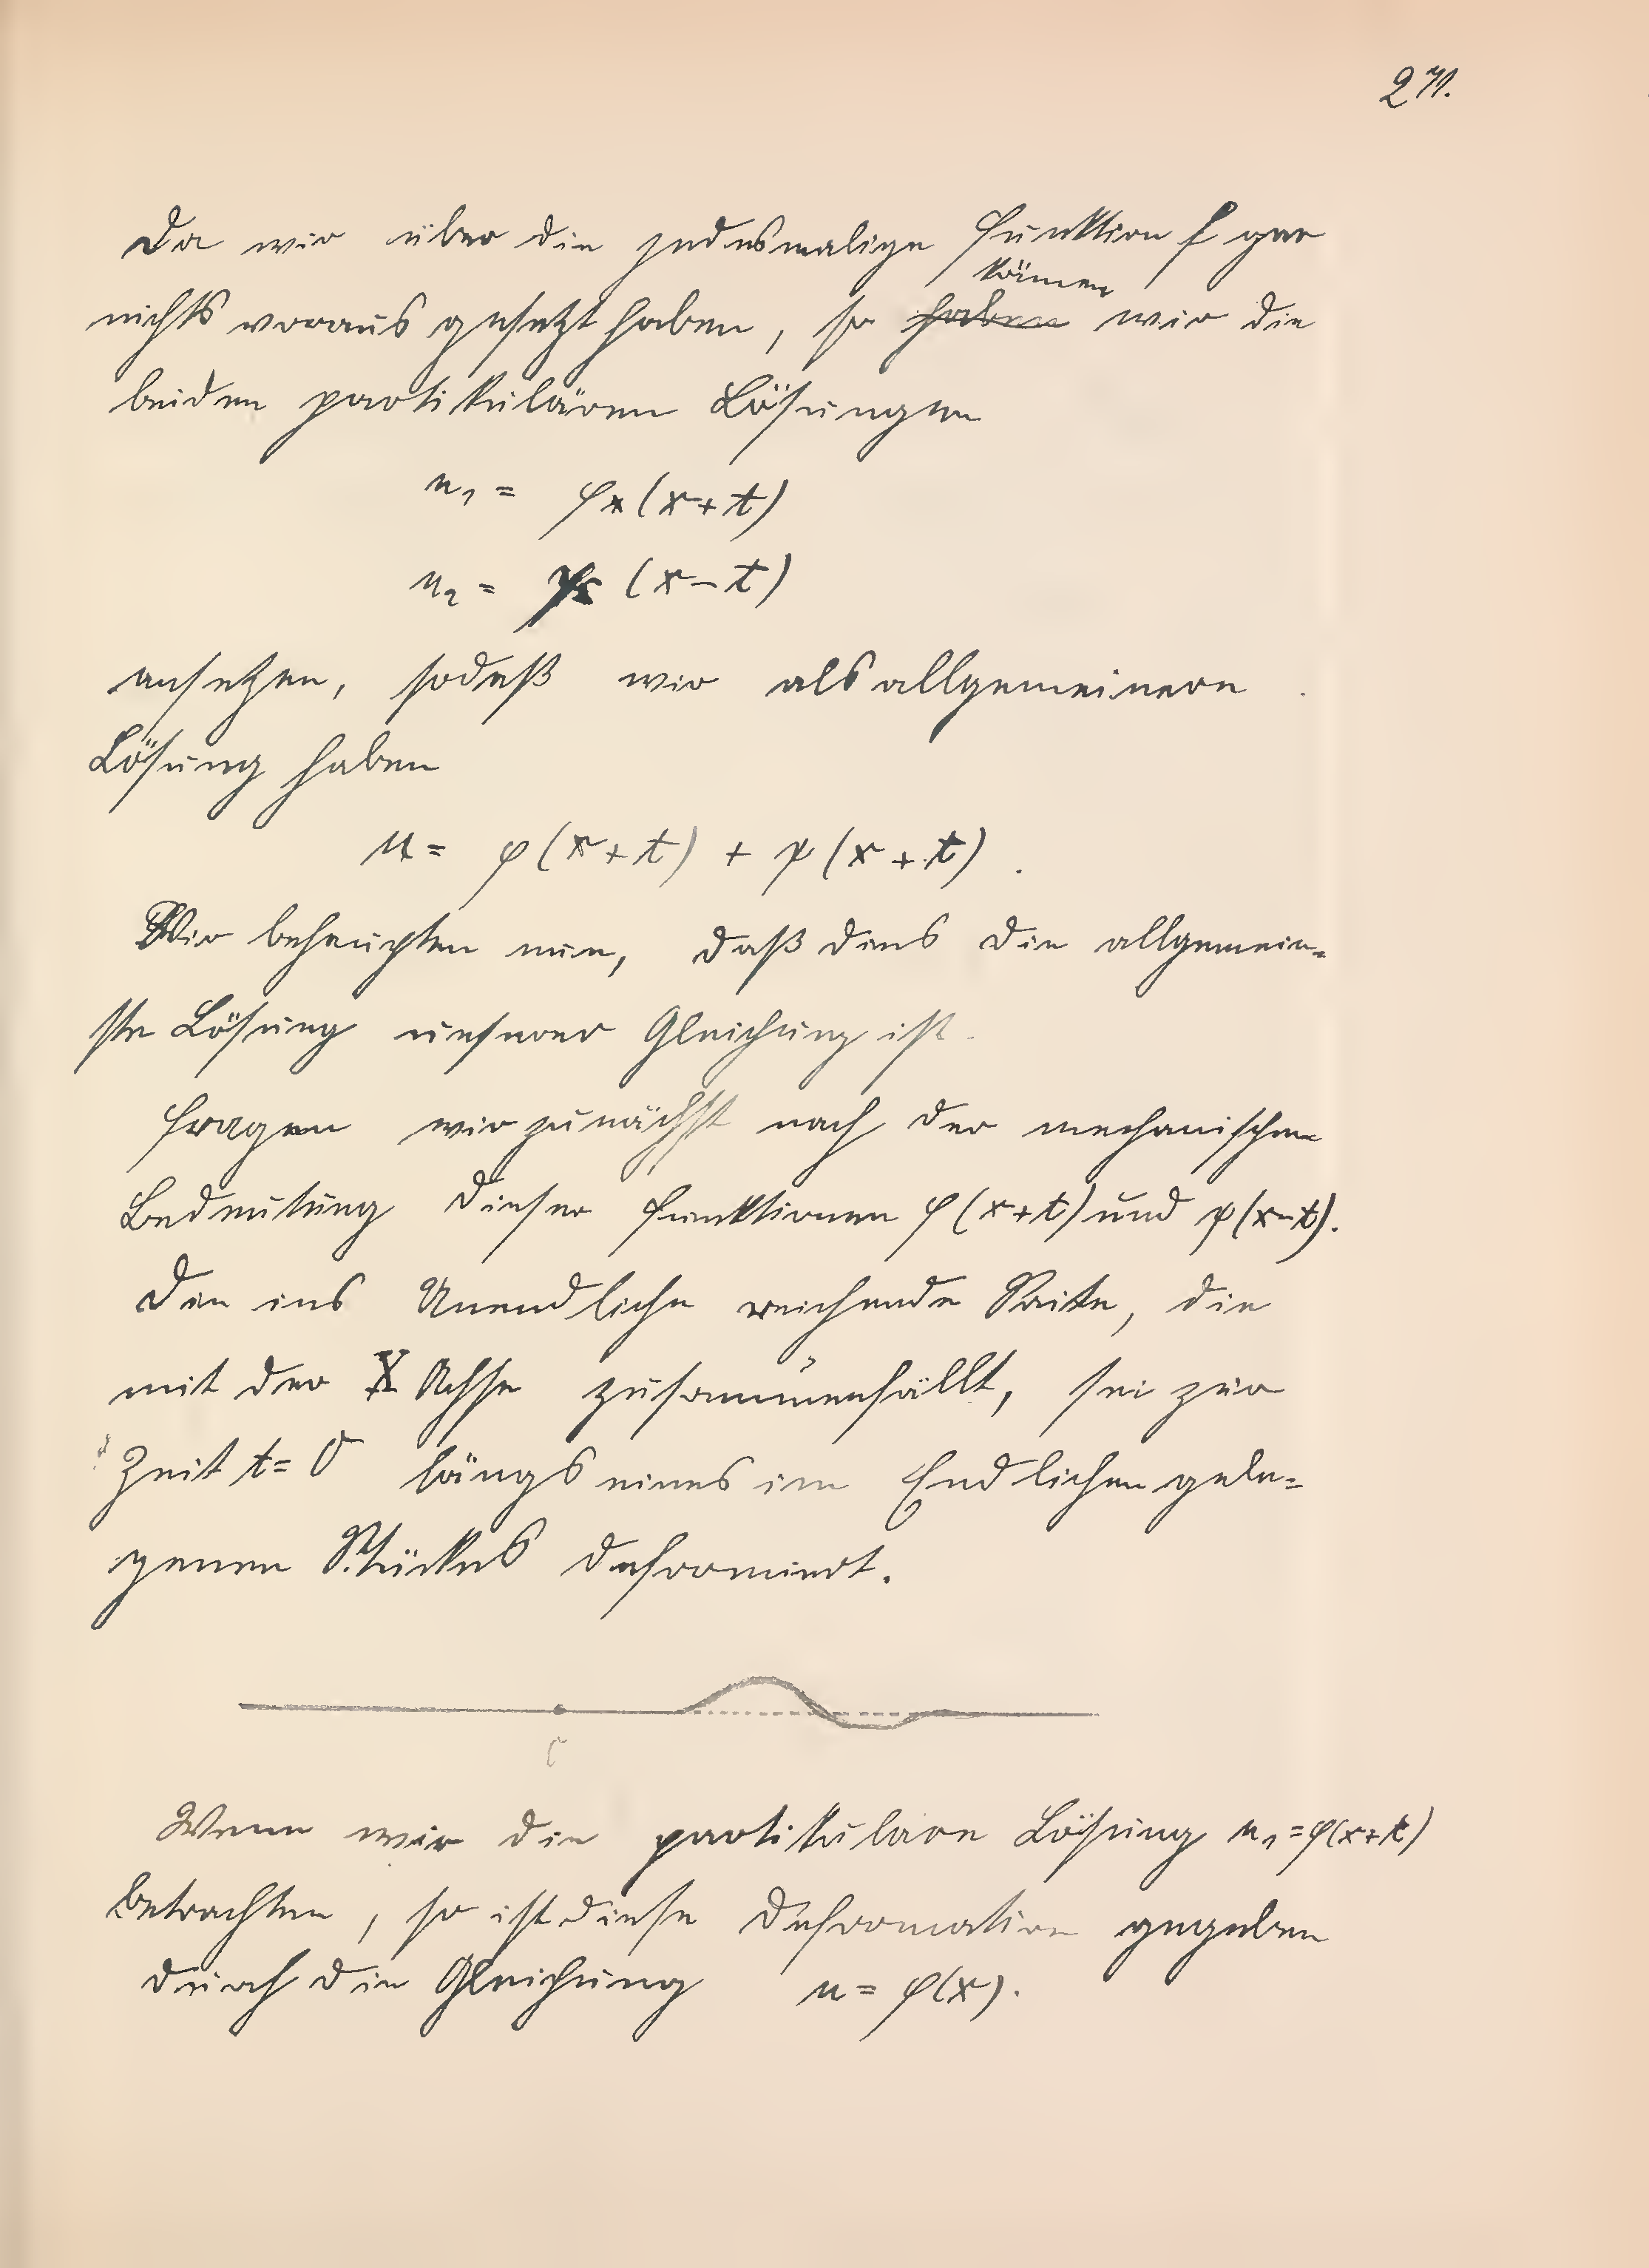 271.
Da wir über die jedesmalige Funktion f gar
können
nichts vorausgesetzt haben, so haben wir die
beiden partikulären Lösungen
u₁ = φ(x+t)
u₂ = ψ(x−t)
ansetzen, sodaß wir als allgemeinere
Lösung haben
u = φ(x+t) + ψ(x+t).
Wir behaupten nun, daß dies die allgemein=
ste Lösung unserer Gleichung ist.
Fragen wir zunächst nach der mechanischen
Bedeutung dieser Funktionen φ(x+t) und ψ(x−t).
Die ins Unendliche reichende Saite, die
mit der X Achse zusammenfällt, sei zur
Zeit t = 0 längs eines im Endlichen gele=
genen Stückes deformiert.
Wenn wir die partikuläre Lösung u₁=φ(x+t)
betrachten, so ist diese Deformation gegeben
durch die Gleichung u = φ(x).